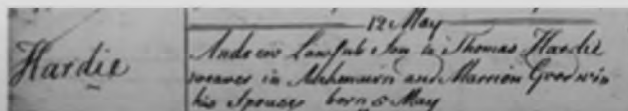 12 May
Hardie
Andrew Lawful Son to Thomas Hardie
weaver in Auchenairn and Marrion Goodwin
his Spouse born 5 May